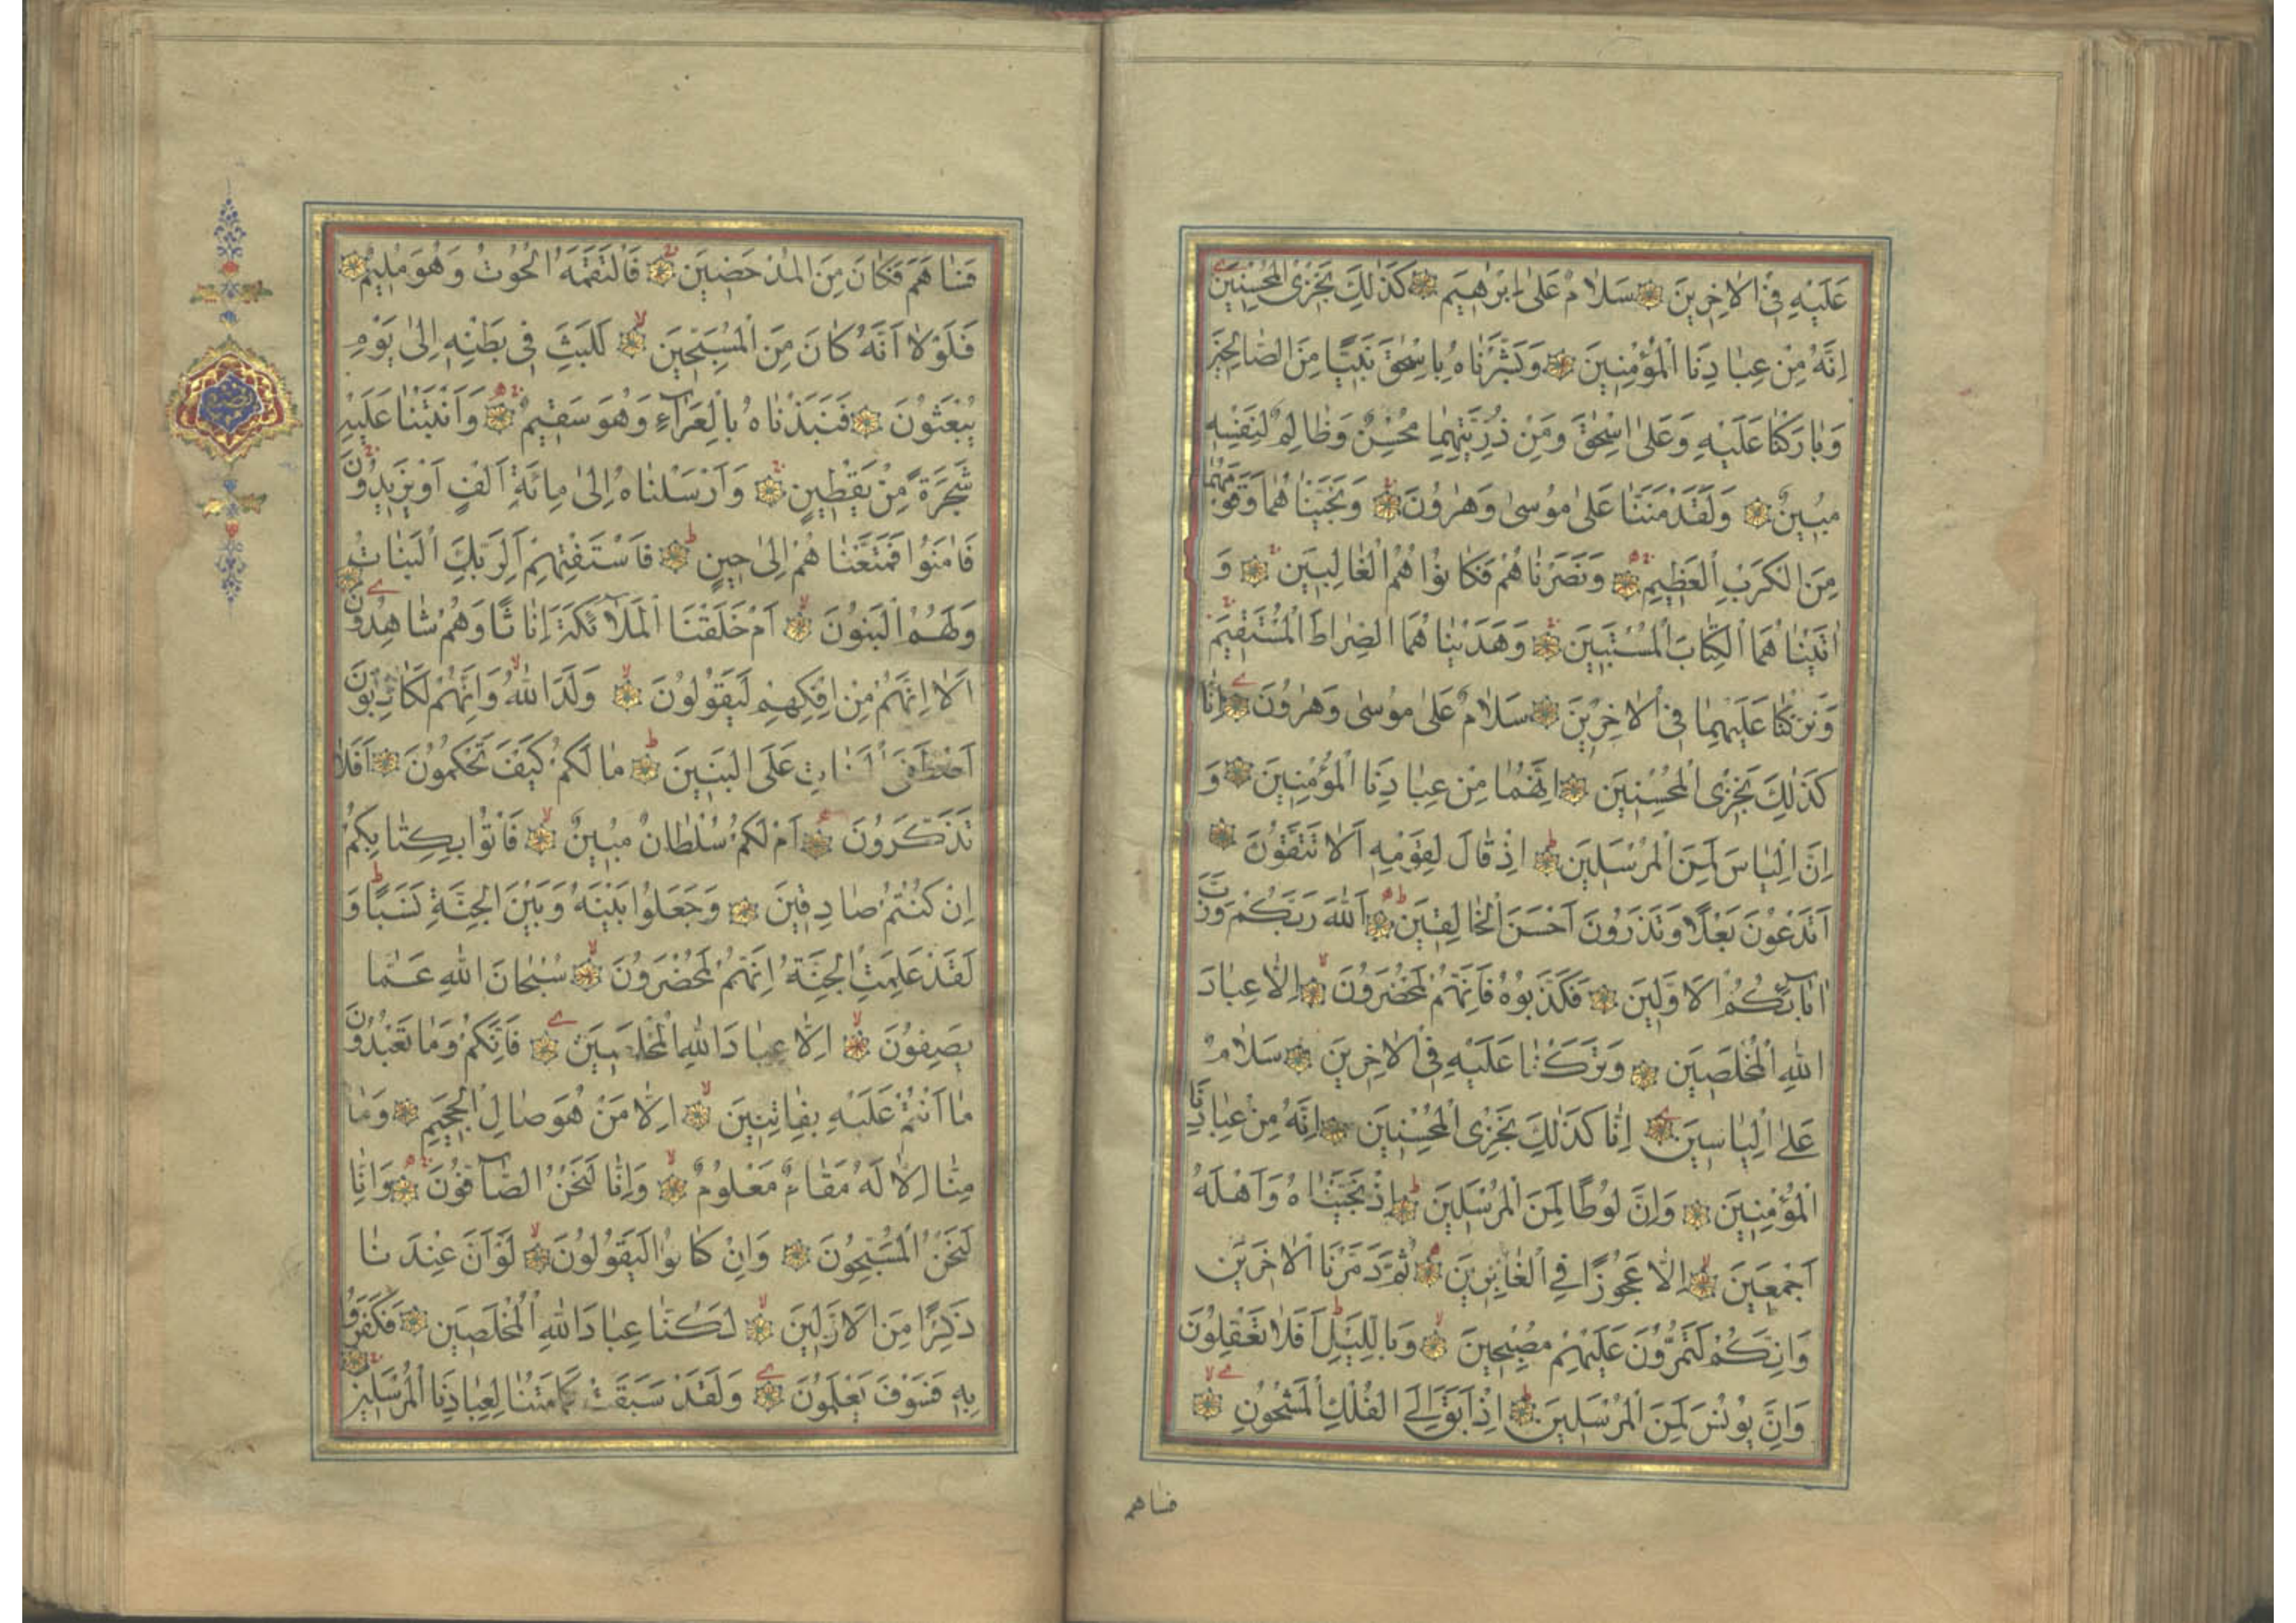 عَلَيْهِ فِي الْاٰخِرِينَ سَلَامٌ عَلٰى اِبْرٰهِيمَ كَذٰلِكَ نَجْزِى الْمُحْسِنِينَ
اِنَّهُ مِنْ عِبَادِنَا الْمُؤْمِنِينَ وَبَشَّرْنَاهُ بِاِسْحٰقَ نَبِيًّا مِنَ الصَّالِحِينَ
وَبَارَكْنَا عَلَيْهِ وَعَلٰى اِسْحٰقَ وَمِنْ ذُرِّيَّتِهِمَا مُحْسِنٌ وَظَالِمٌ لِنَفْسِهِ
مُبِينٌ وَلَقَدْ مَنَنَّا عَلٰى مُوسٰى وَهٰرُونَ وَنَجَّيْنَاهُمَا وَقَوْمَهُمَا
مِنَ الْكَرْبِ الْعَظِيمِ وَنَصَرْنَاهُمْ فَكَانُوا هُمُ الْغَالِبِينَ وَ
اٰتَيْنَاهُمَا الْكِتَابَ الْمُسْتَبِينَ وَهَدَيْنَاهُمَا الصِّرَاطَ الْمُسْتَقِيمَ
وَتَرَكْنَا عَلَيْهِمَا فِي الْاٰخِرِينَ سَلَامٌ عَلٰى مُوسٰى وَهٰرُونَ اِنَّا
كَذٰلِكَ نَجْزِى الْمُحْسِنِينَ اِنَّهُمَا مِنْ عِبَادِنَا الْمُؤْمِنِينَ وَ
اِنَّ اِلْيَاسَ لَمِنَ الْمُرْسَلِينَ اِذْ قَالَ لِقَوْمِهِ اَلَا تَتَّقُونَ
اَتَدْعُونَ بَعْلًا وَتَذَرُونَ اَحْسَنَ الْخَالِقِينَ اَللّٰهَ رَبَّكُمْ وَرَبَّ
اٰبَآئِكُمُ الْاَوَّلِينَ فَكَذَّبُوهُ فَاِنَّهُمْ لَمُحْضَرُونَ اِلَّا عِبَادَ
اللّٰهِ الْمُخْلَصِينَ وَتَرَكْنَا عَلَيْهِ فِي الْاٰخِرِينَ سَلَامٌ
عَلٰى اِلْيَاسِينَ اِنَّا كَذٰلِكَ نَجْزِى الْمُحْسِنِينَ اِنَّهُ مِنْ عِبَادِنَا
الْمُؤْمِنِينَ وَاِنَّ لُوطًا لَمِنَ الْمُرْسَلِينَ اِذْ نَجَّيْنَاهُ وَاَهْلَهُ
اَجْمَعِينَ اِلَّا عَجُوزًا فِي الْغَابِرِينَ ثُمَّ دَمَّرْنَا الْاٰخَرِينَ
وَاِنَّكُمْ لَتَمُرُّونَ عَلَيْهِمْ مُصْبِحِينَ وَبِاللَّيْلِ اَفَلَا تَعْقِلُونَ
وَاِنَّ يُونُسَ لَمِنَ الْمُرْسَلِينَ اِذْ اَبَقَ اِلَى الْفُلْكِ الْمَشْحُونِ
فساهم
فَسَاهَمَ فَكَانَ مِنَ الْمُدْحَضِينَ فَالْتَقَمَهُ الْحُوتُ وَهُوَ مُلِيمٌ
فَلَوْلَا اَنَّهُ كَانَ مِنَ الْمُسَبِّحِينَ لَلَبِثَ فِي بَطْنِهِ اِلٰى يَوْمِ
يُبْعَثُونَ فَنَبَذْنَاهُ بِالْعَرَآءِ وَهُوَ سَقِيمٌ وَاَنْبَتْنَا عَلَيْهِ
شَجَرَةً مِنْ يَقْطِينٍ وَاَرْسَلْنَاهُ اِلٰى مِائَةِ اَلْفٍ اَوْ يَزِيدُونَ
فَاٰمَنُوا فَمَتَّعْنَاهُمْ اِلٰى حِينٍ فَاسْتَفْتِهِمْ اَلِرَبِّكَ الْبَنَاتُ
وَلَهُمُ الْبَنُونَ اَمْ خَلَقْنَا الْمَلَآئِكَةَ اِنَاثًا وَهُمْ شَاهِدُونَ
اَلَا اِنَّهُمْ مِنْ اِفْكِهِمْ لَيَقُولُونَ وَلَدَ اللّٰهُ وَاِنَّهُمْ لَكَاذِبُونَ
اَصْطَفَى الْبَنَاتِ عَلَى الْبَنِينَ مَا لَكُمْ كَيْفَ تَحْكُمُونَ اَفَلَا
تَذَكَّرُونَ اَمْ لَكُمْ سُلْطَانٌ مُبِينٌ فَاْتُوا بِكِتَابِكُمْ
اِنْ كُنْتُمْ صَادِقِينَ وَجَعَلُوا بَيْنَهُ وَبَيْنَ الْجِنَّةِ نَسَبًا وَ
لَقَدْ عَلِمَتِ الْجِنَّةُ اِنَّهُمْ لَمُحْضَرُونَ سُبْحَانَ اللّٰهِ عَمَّا
يَصِفُونَ اِلَّا عِبَادَ اللّٰهِ الْمُخْلَصِينَ فَاِنَّكُمْ وَمَا تَعْبُدُونَ
مَا اَنْتُمْ عَلَيْهِ بِفَاتِنِينَ اِلَّا مَنْ هُوَ صَالِ الْجَحِيمِ وَمَا
مِنَّا اِلَّا لَهُ مَقَامٌ مَعْلُومٌ وَاِنَّا لَنَحْنُ الصَّآفُّونَ وَاِنَّا
لَنَحْنُ الْمُسَبِّحُونَ وَاِنْ كَانُوا لَيَقُولُونَ لَوْ اَنَّ عِنْدَنَا
ذِكْرًا مِنَ الْاَوَّلِينَ لَكُنَّا عِبَادَ اللّٰهِ الْمُخْلَصِينَ فَكَفَرُوا
بِهِ فَسَوْفَ يَعْلَمُونَ وَلَقَدْ سَبَقَتْ كَلِمَتُنَا لِعِبَادِنَا الْمُرْسَلِينَ